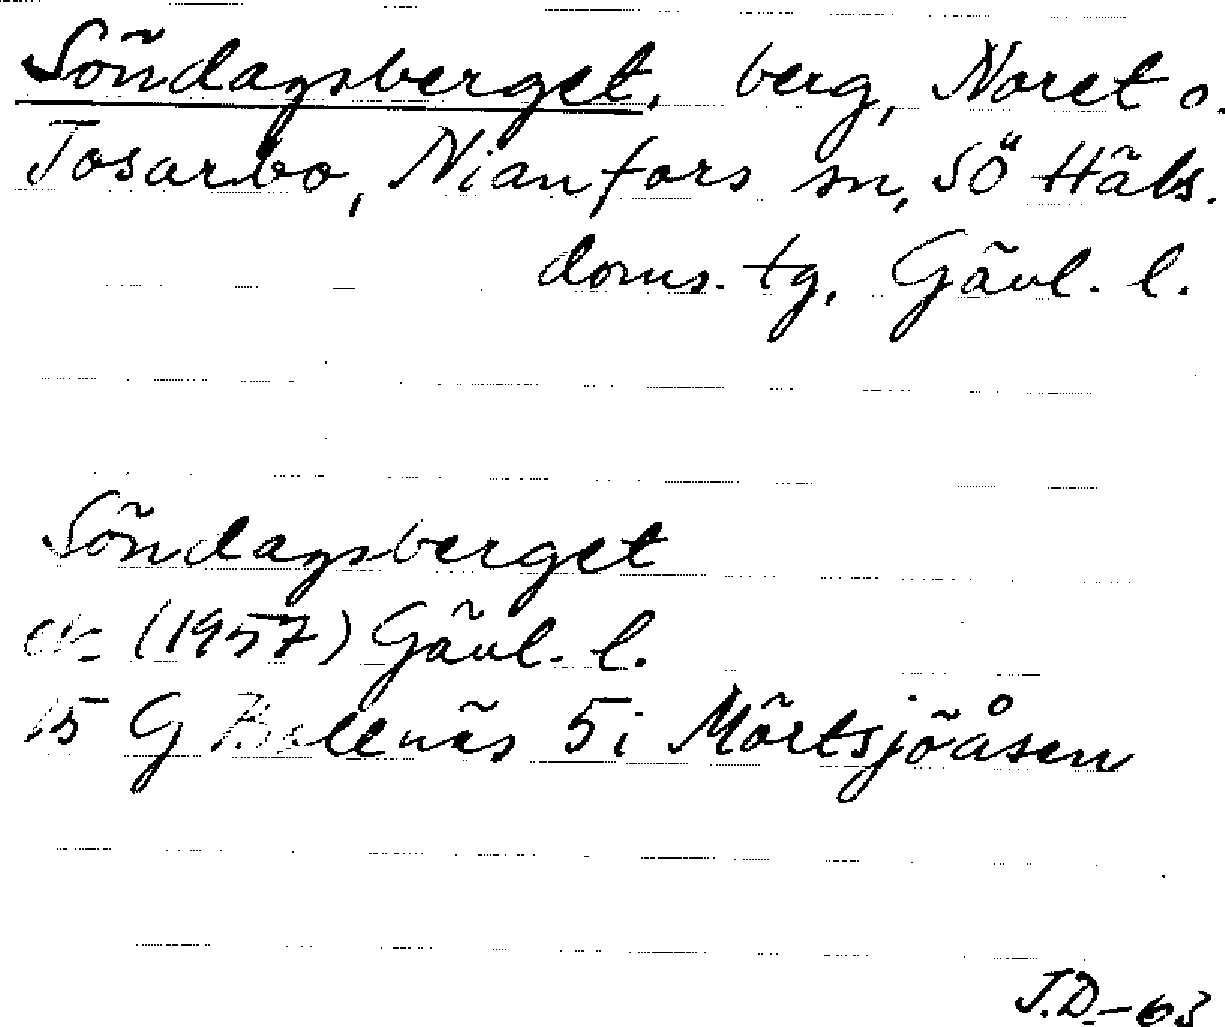 Söndagsberget, berg, Noret o.
Tosarbo, Nianfors sn, SÖ Häls.
doms. tg, Gävl. l.
Söndagsberget
ek (1957) Gävl. l.
15 G Bollnäs 5i Mörtsjöåsen
J.D.-63